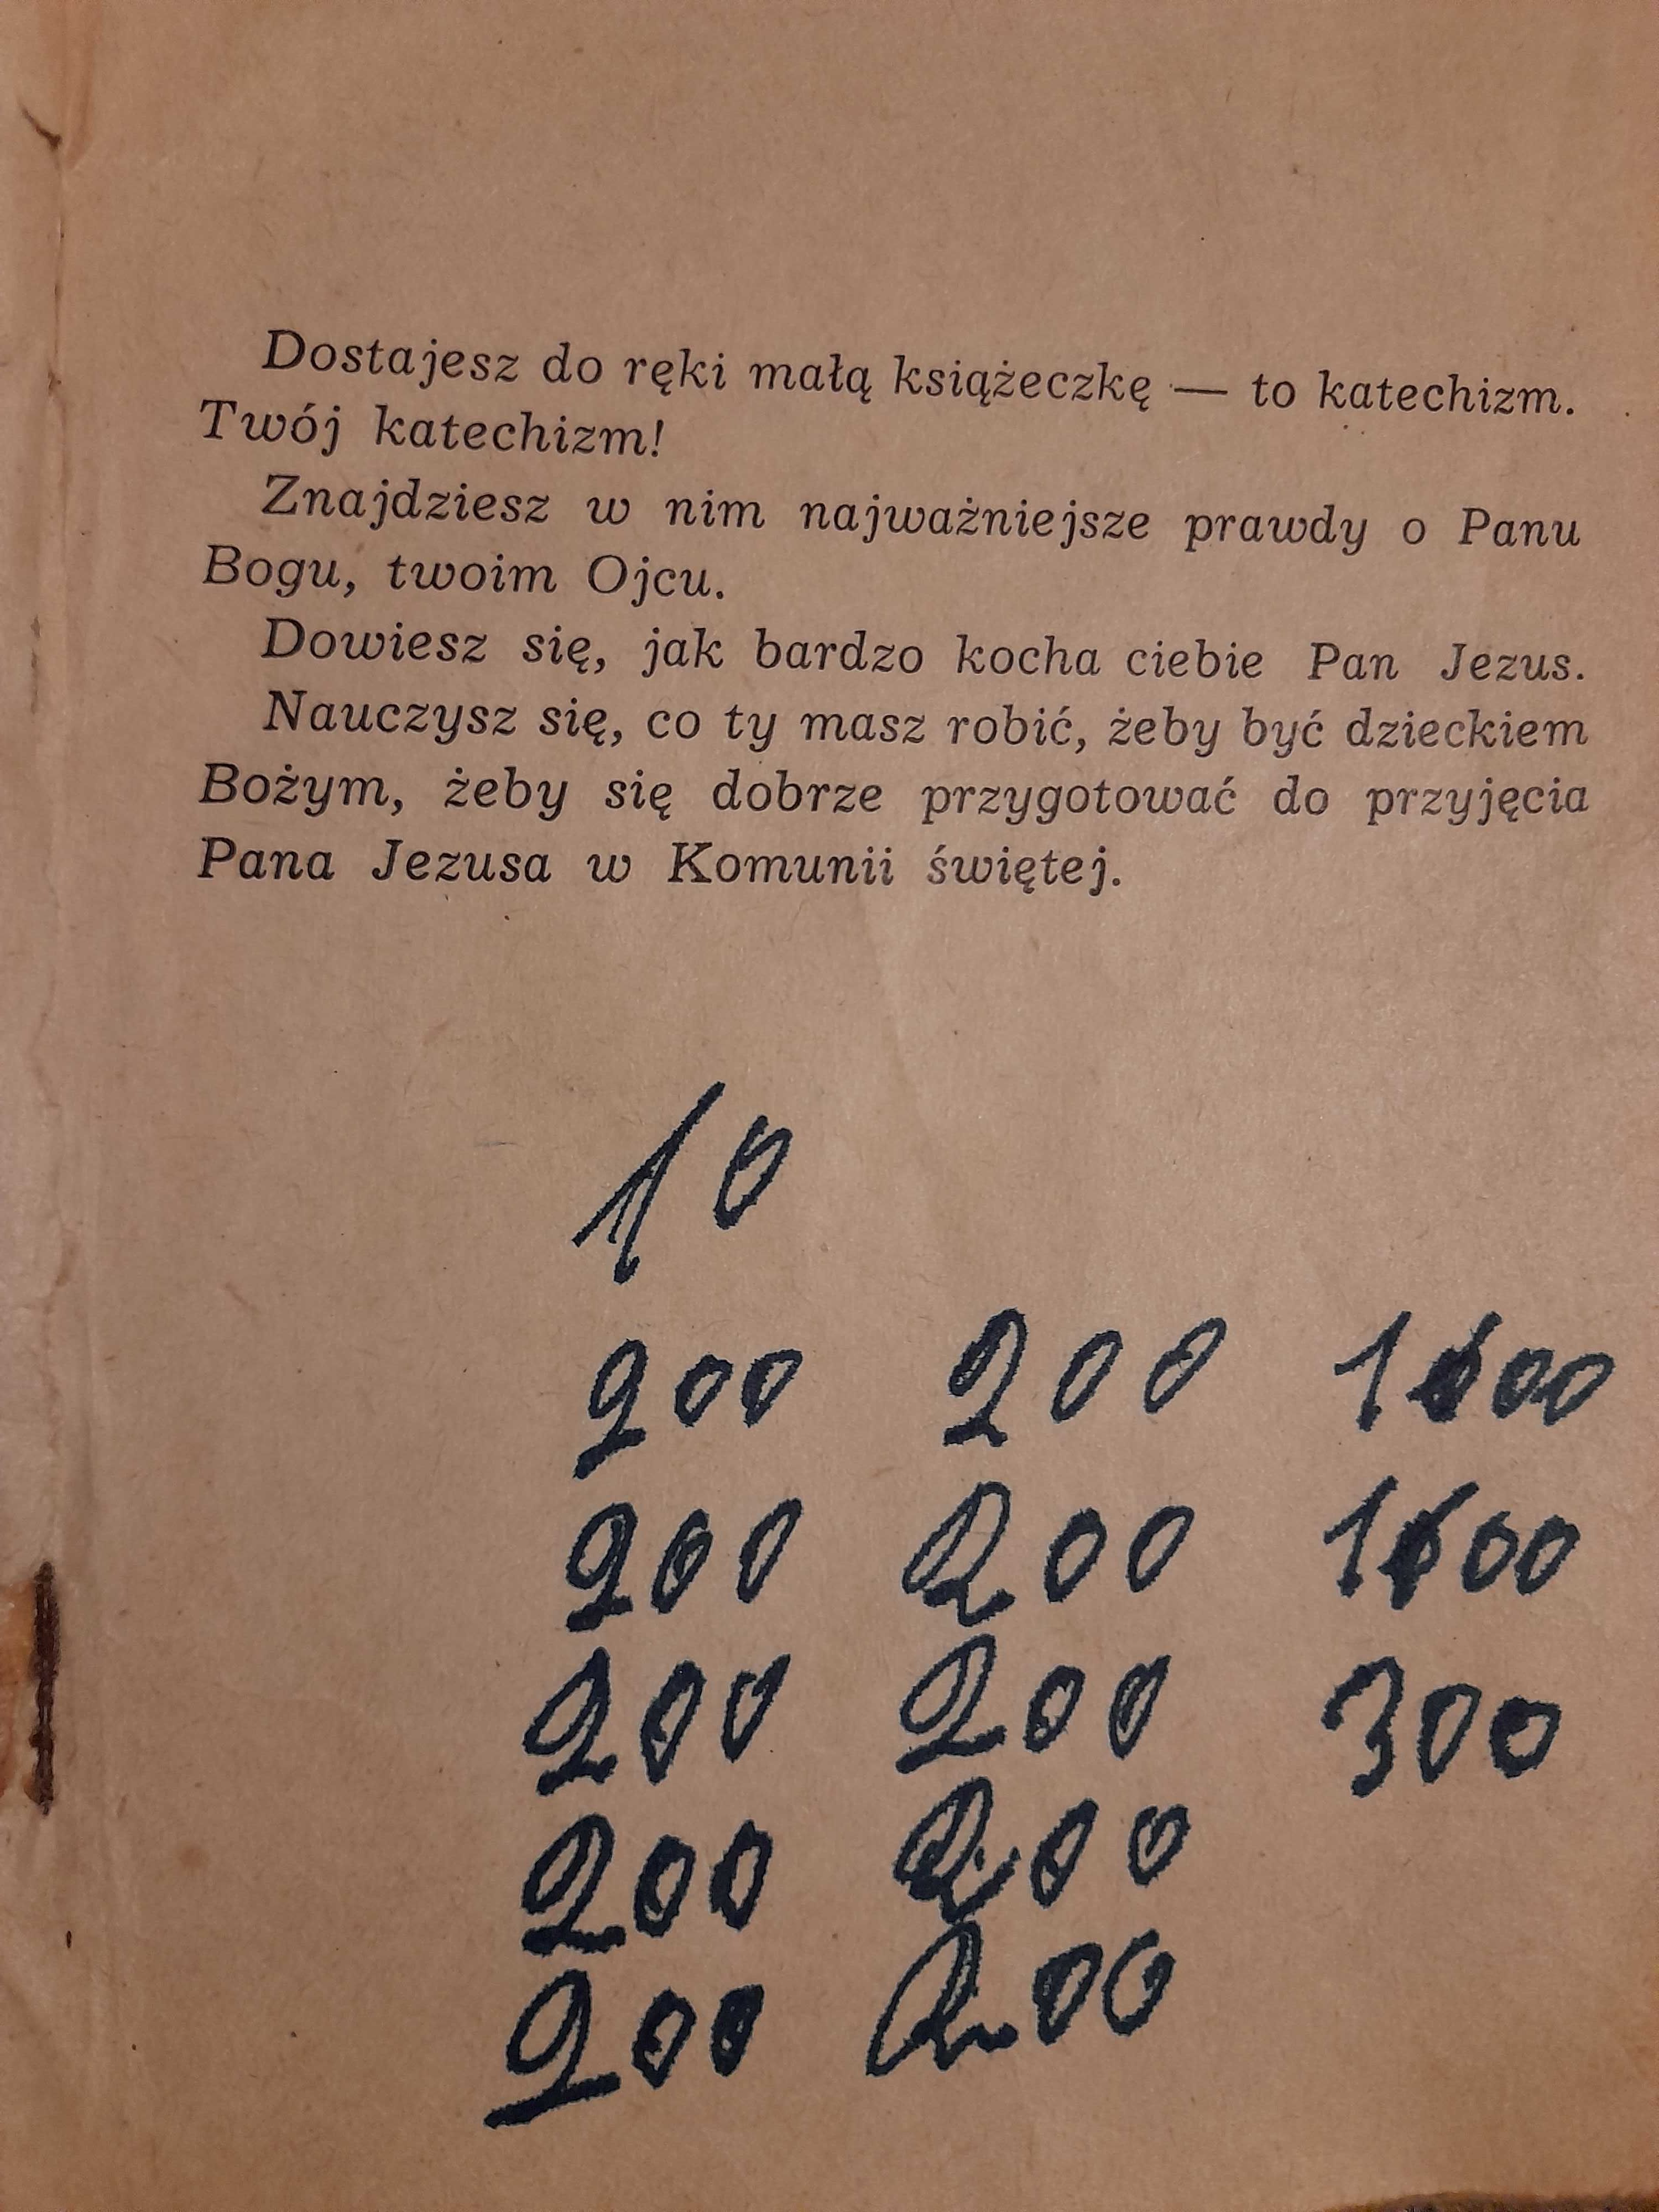 Dostajesz do ręki małą książeczkę — to katechizm.
Twój katechizm!
Znajdziesz w nim najważniejsze prawdy o Panu
Bogu, twoim Ojcu.
Dowiesz się, jak bardzo kocha ciebie Pan Jezus.
Nauczysz się, co ty masz robić, żeby być dzieckiem
Bożym, żeby się dobrze przygotować do przyjęcia
Pana Jezusa w Komunii świętej.
10
200 200 1000
200 200 1000
200 200 300
200 200
200 200